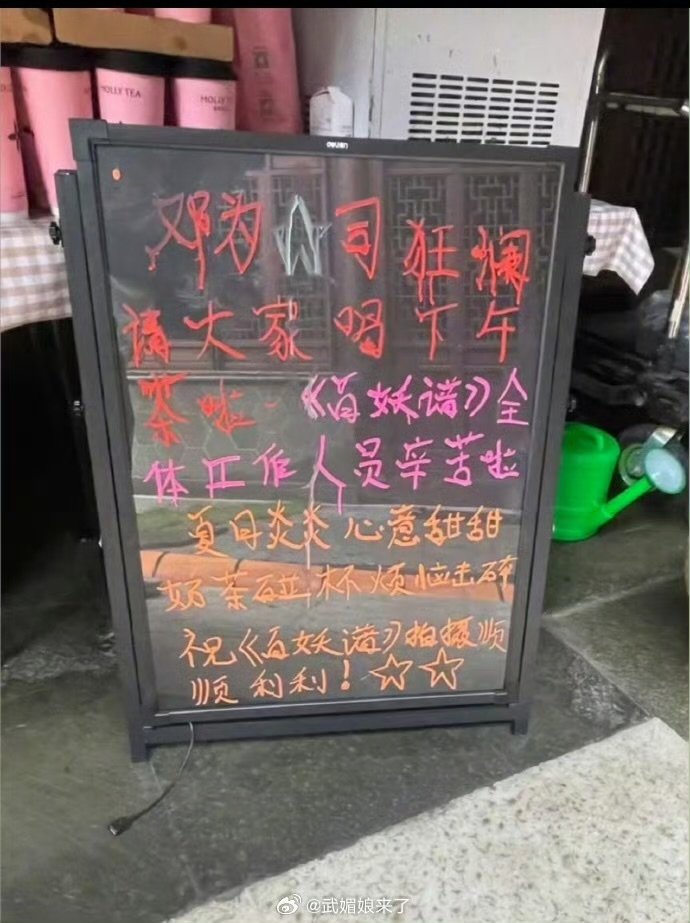 MOLLY TEA
MOLLY TEA
deli
邓为 司狂澜
请大家喝下午
茶啦~《百妖谱》全
体工作人员辛苦啦
夏日炎炎 心意甜甜
奶茶碰杯 烦恼击碎
祝《百妖谱》拍摄顺
顺利利!☆☆
@武媚娘来了